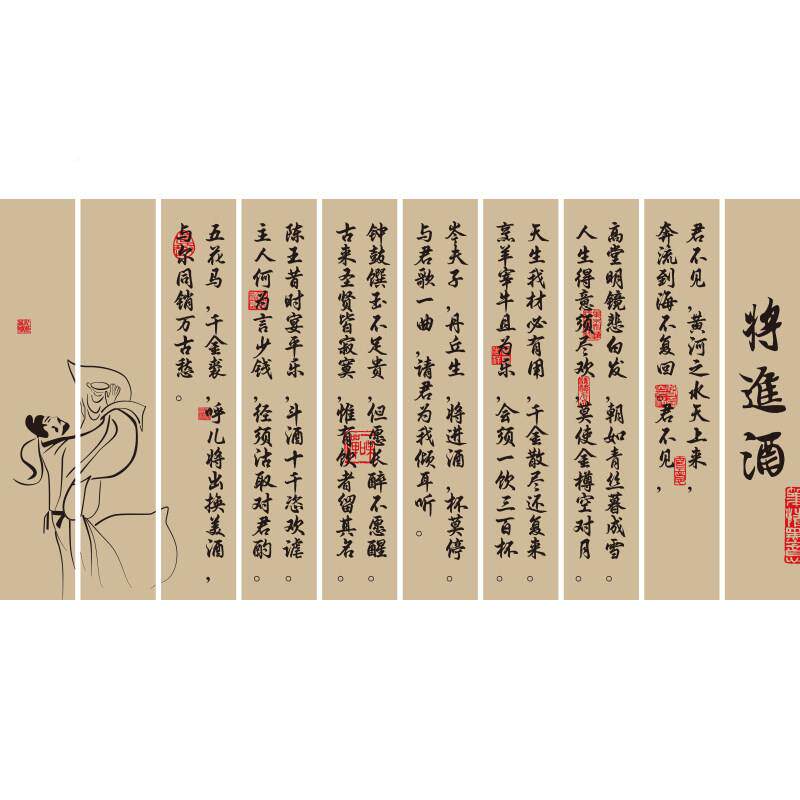 将進酒
君不见，黄河之水天上来，
奔流到海不复回。君不见，
高堂明镜悲白发，朝如青丝暮成雪。
人生得意须尽欢，莫使金樽空对月。
天生我材必有用，千金散尽还复来。
烹羊宰牛且为乐，会须一饮三百杯。
岑夫子，丹丘生，将进酒，杯莫停。
与君歌一曲，请君为我倾耳听。
钟鼓馔玉不足贵，但愿长醉不愿醒。
古来圣贤皆寂寞，惟有饮者留其名。
陈王昔时宴平乐，斗酒十千恣欢谑。
主人何为言少钱，径须沽取对君酌。
五花马，千金裘，呼儿将出换美酒，
与尔同销万古愁。